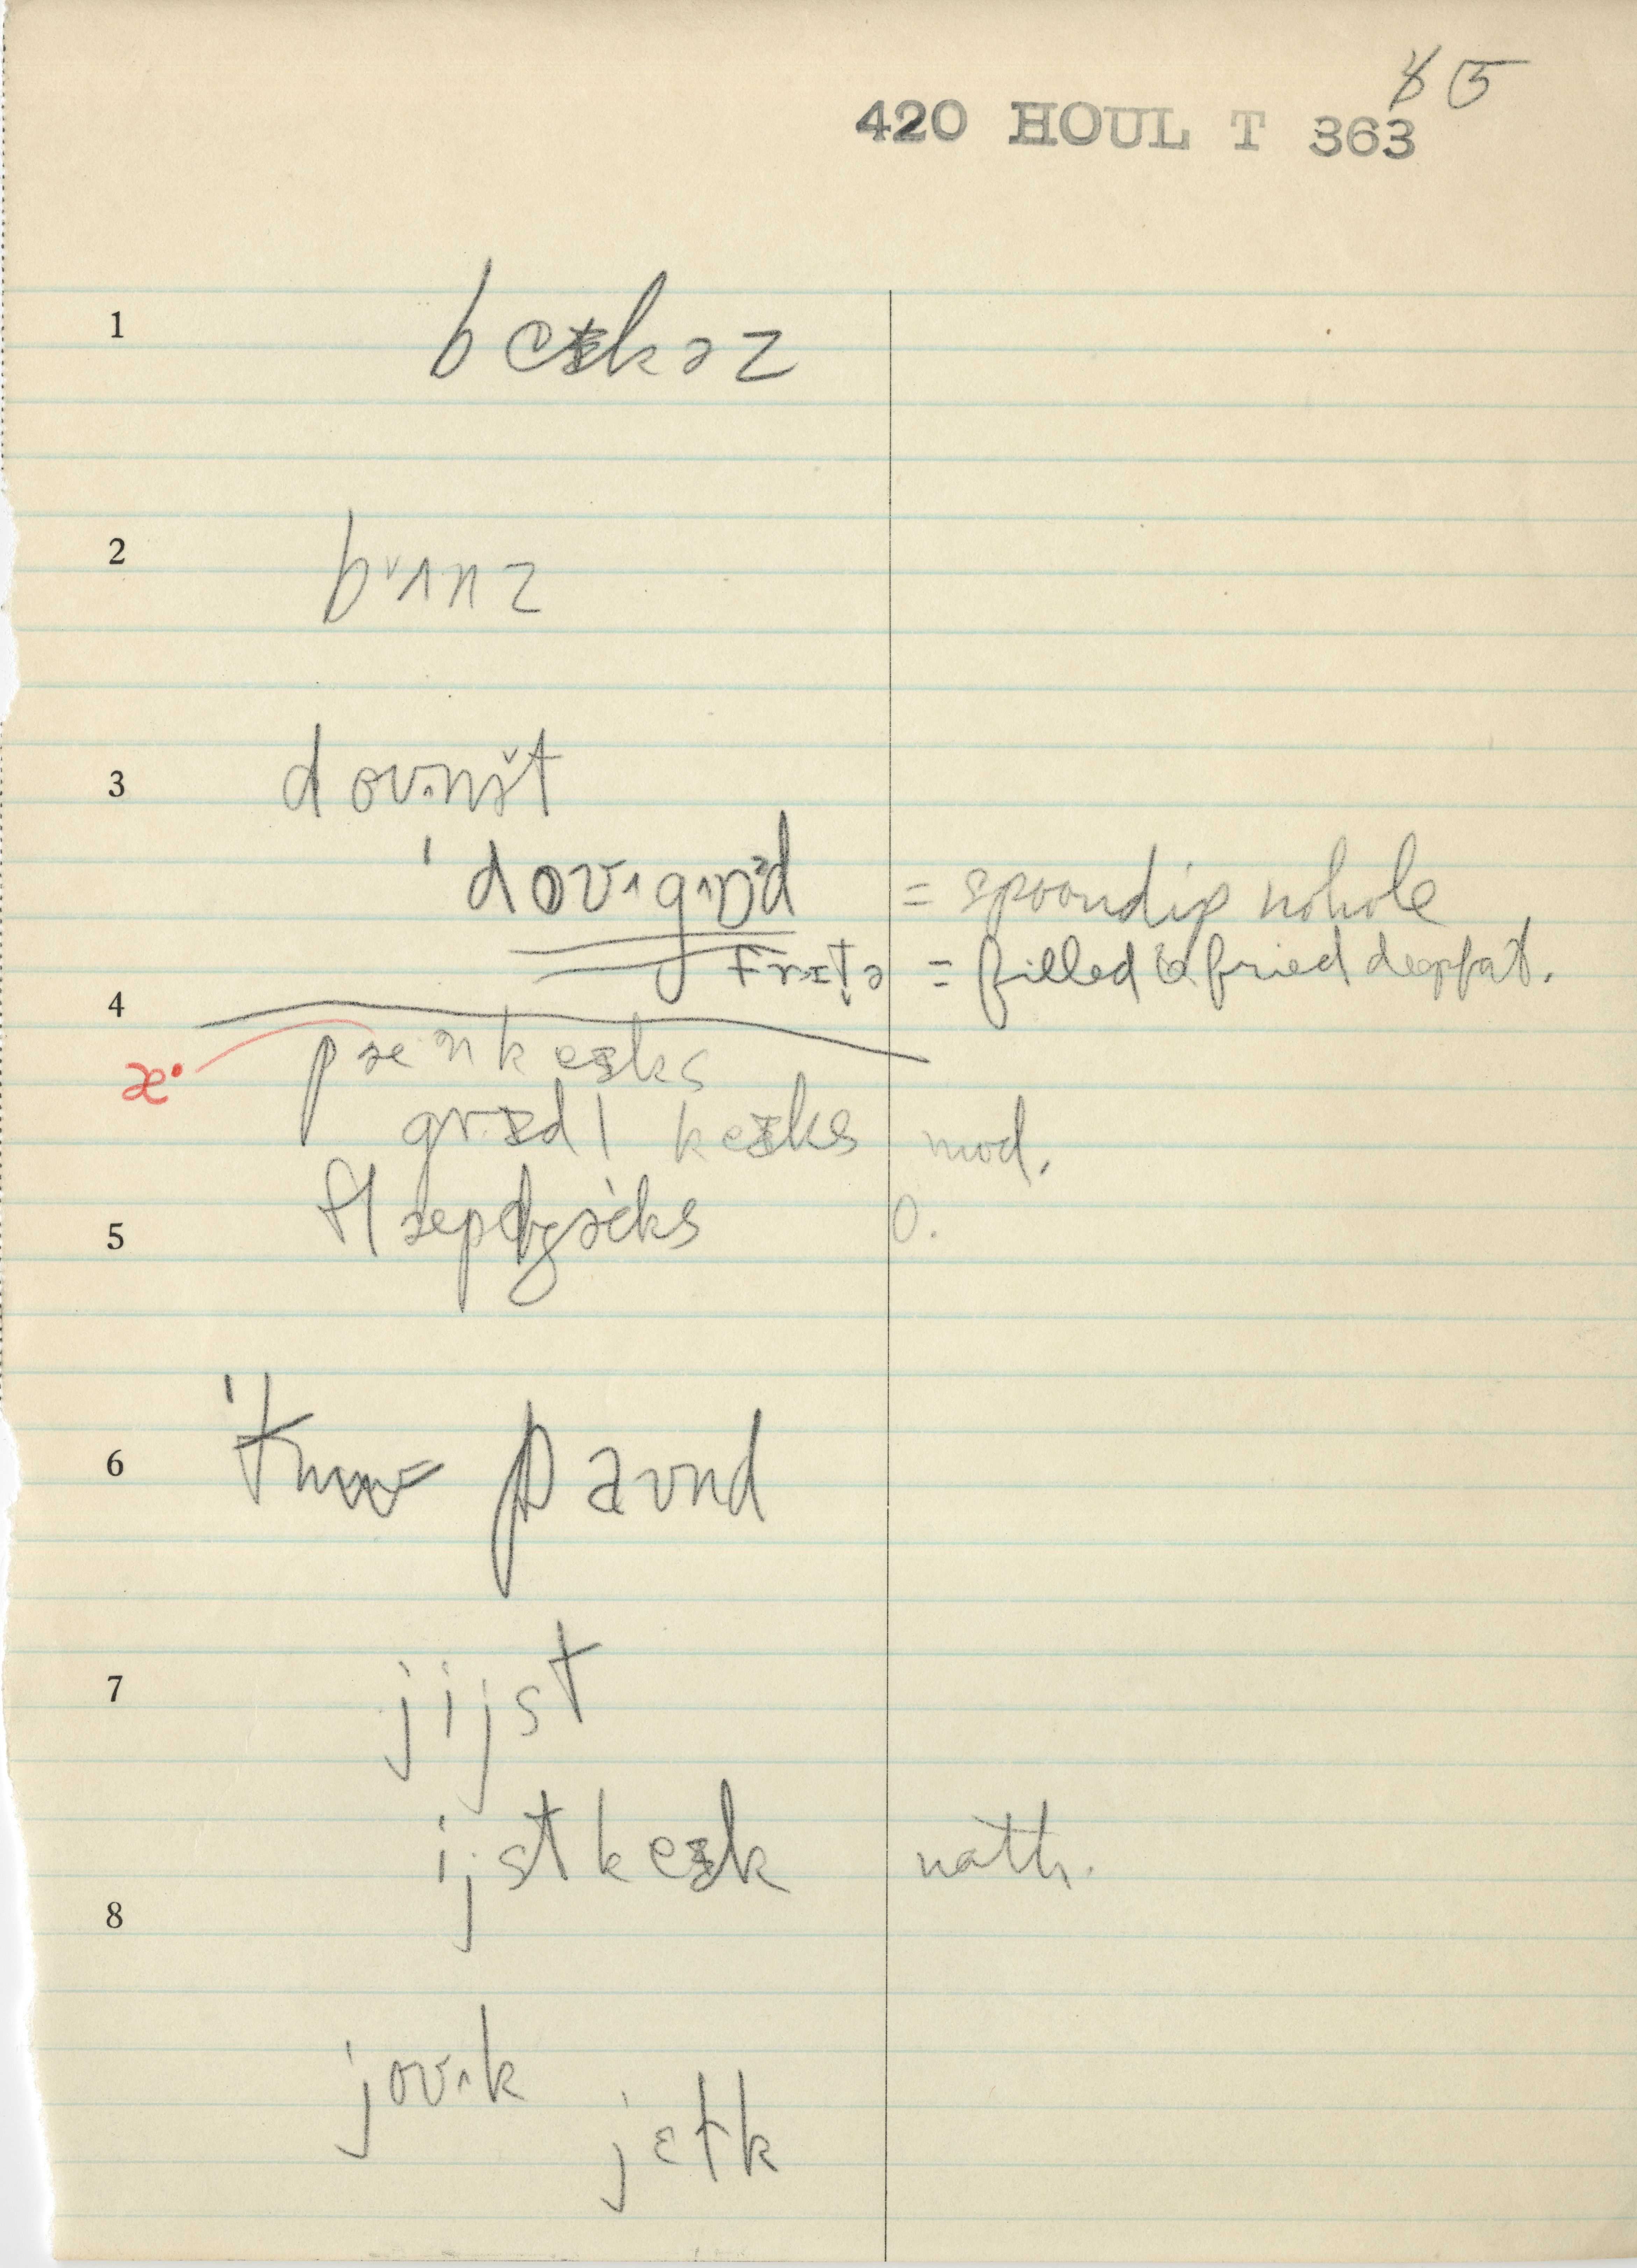 85
420 HOUL T 363
1
beɪkəz
2
bᵛʌnz
3
doʊ.nʌt
ˈdoʊ.gɒd = spoondip nohole
frɪtə = filled & fried deepfat.
4
æ· pænkeɪks
grɪdl keɪks mod.
5
flæpdʒæks o.
6
paʊnd
7
jijst
ijstkeɪk nath.
8
joʊ.k
jɛlk